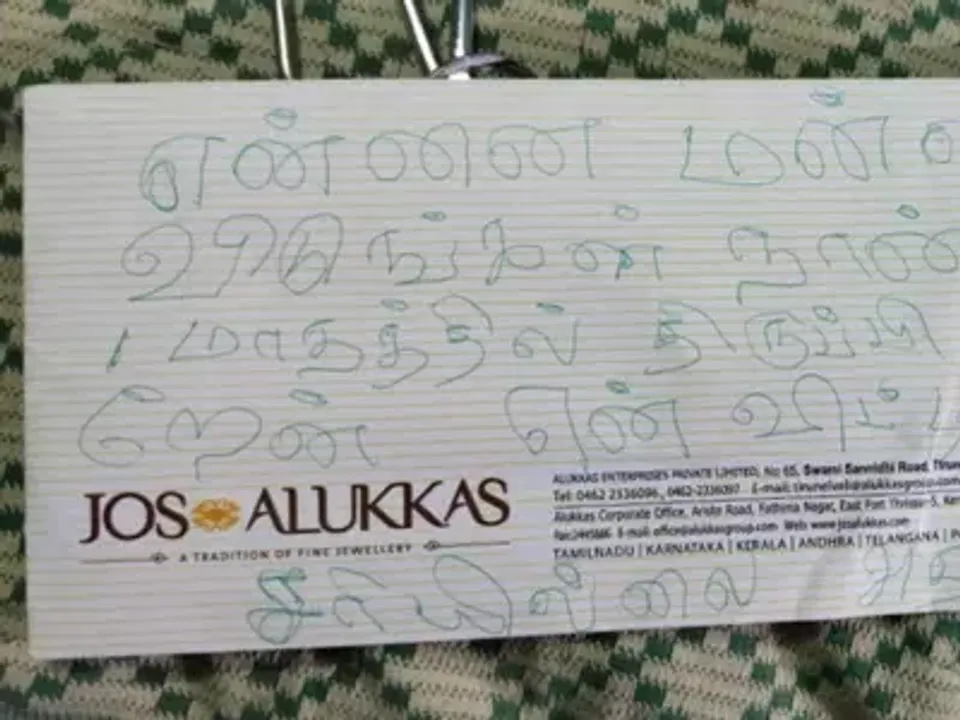 என்னை மன்
விடுங்கள் நான்
1 மாதத்தில் திருப்பி
றேன் என் வீட்
JOS ALUKKAS
A TRADITION OF FINE JEWELLERY
ALUKKAS ENTERPRISES PRIVATE LIMITED, No 65, Swami Sannidhi Road, Tirune
Tel: 0462 2336096, 0462-2336097 E-mail: tirunelveli@alukkasgroup.com
Alukkas Corporate Office, Aristo Road, Fathima Nagar, East Fort Thrissur-5, Ker
E-mail: office@alukkasgroup.com Web: www.josalukkas.com
TAMILNADU | KARNATAKA | KERALA | ANDHRA | TELANGANA | P
சரியில்லை